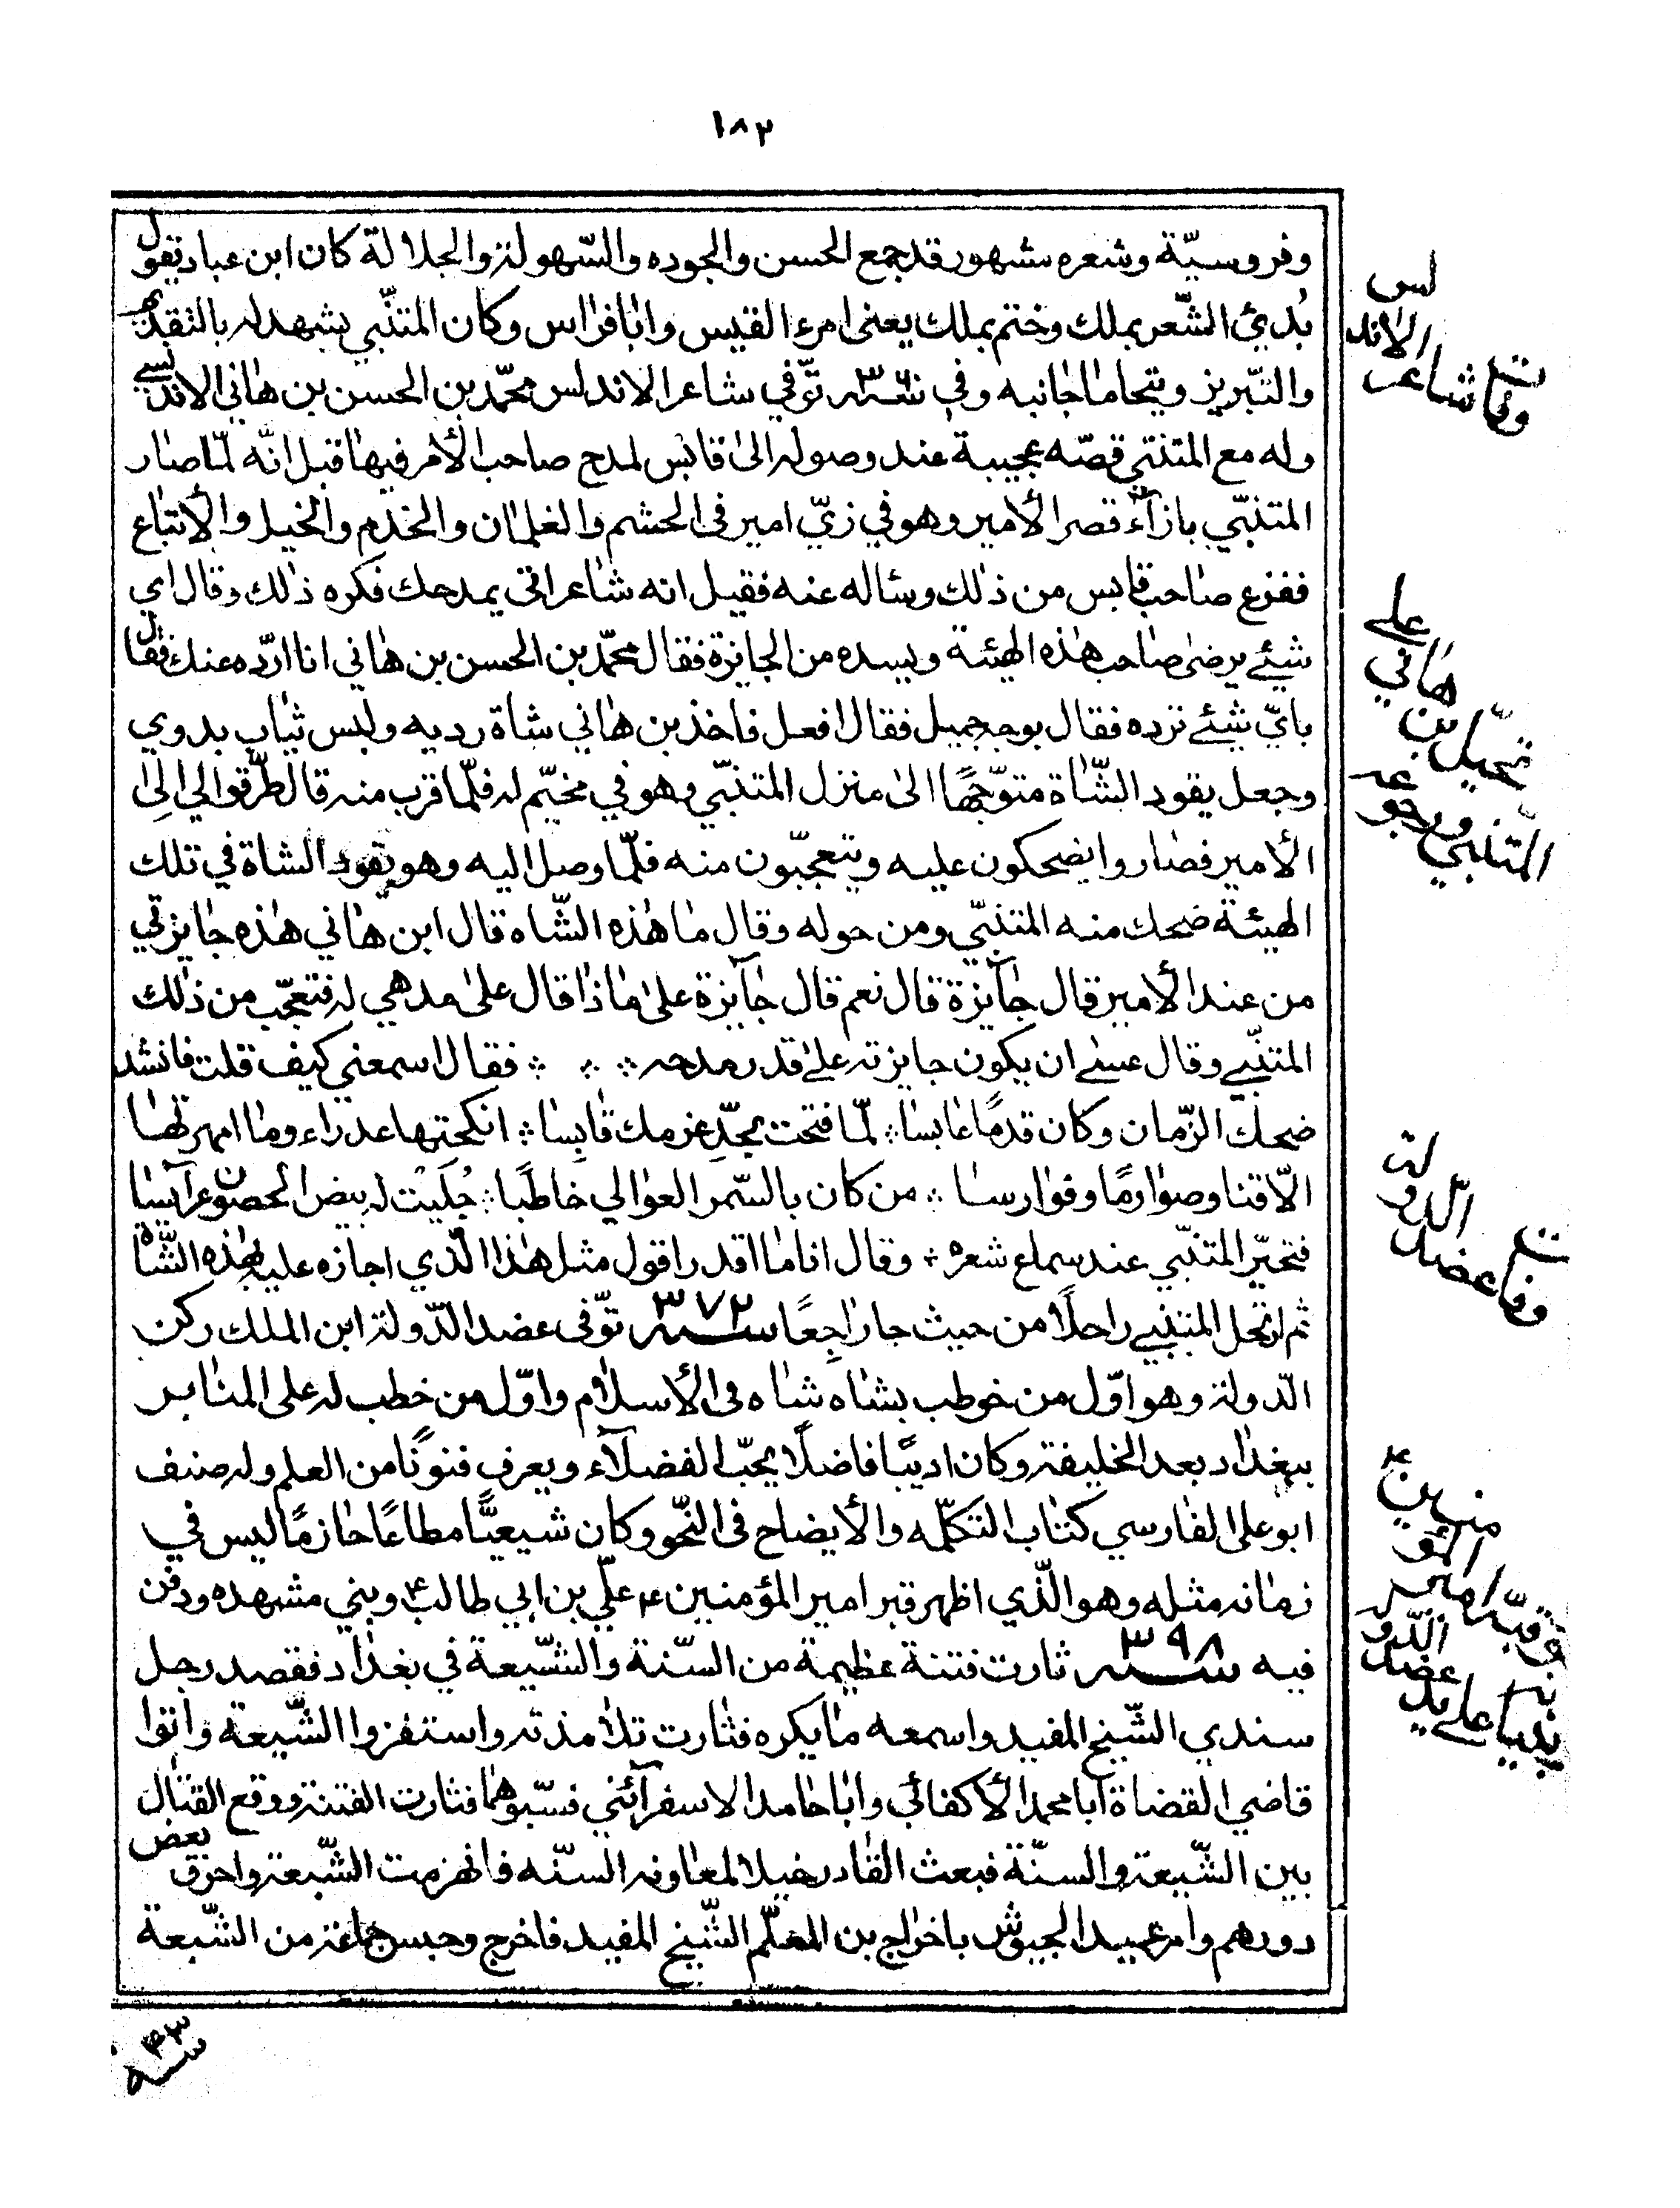 ١٨٢
وفروسيّة وشعره مشهور قد جمع الحسن والجوده والسّهولة والجلالة كان ابن عباد يقول
بُدئ الشّعر بملك وختم بملك يعنى امرء القيس وابا فراس وكان المتنبّي يشهد له بالتقديم
والتّبريز ويتحاما جانبه وفي سنة توّفي شاعر الاندلس محمّد بن الحسن بن هاني الاندلسي
وله مع المتنبّي قصّه عجيبة عند وصوله الى قابس لمدح صاحب الأمر فيها قبل انّه لمّا صار
المتنبّي بازآء قصر الأمير وهو في زيّ امير في الحشم والغلمان والخدم والخيل والأتباع
ففزع صاحب قابس من ذلك وسئاله عنه فقيل انه شاعر اتى يمدحك فكره ذلك وقال اي
شيئ يرضى صاحب هذه الهيئة ويسده من الجايزة فقال محمّد بن الحسن بن هاني انا اردّه عنك فقال
بايّ شيئ ترده فقال بوجه جميل فقال افعل فاخذ بن هاني شاة رديه ولبس ثياب بدوي
وجعل يقود الشّاة متوّجهًا الى منزل المتنبّي وهو في مخيّم له فلمّا قرب منه قال طرّقوا لي الى
الأمير فصاروا يضحكون عليه ويتعجبّون منه فلمّا وصل اليه وهو يقود الشاة في تلك
الهيئة ضحك منه المتنبّي ومن حوله وقال ما هذه الشّاه قال ابن هاني هذه جايزتي
من عند الأمير قال جآيزة قال نعم قال جآيزة على ماذا قال على مدهي له فتعجّب من ذلك
المتنبّي وقال عسى ان يكون جايزته على قدر مدحه ⁘ ⁘ ⁘ فقال اسمعني كيف قلت فانشد
ضحك الزّمان وكان قدمًا عابسا ⁘ لمّا فتحت بحدّ عزمك قابسا ⁘ انكحتها عدراء وما امهرتها
الّا قنا وصوارمًا وفوارسا ⁘ من كان بالسّمر العوالي خاطبًا ⁘ جُلَيت له بيض الحصون عرآيسا
فتحيّر المتنبّي عند سماع شعره ÷ وقال انا ما اقدر اقول مثل هذا الّذي اجازه عليه بهذه الشّاة
ثم ارتحل المتنبّي راحلًا من حيث جا راجِعًا سنة ٣٧٢ توّفى عضد الدّولة ابن الملك ركن
الدّولة وهو اوّل من خوطب بشاه شاه في الأسلام واوّل من خطب له على المنابر
ببغداد بعد الخليفة وكان اديبًا فاضلًا يحبّ الفضلآء ويعرف فنونًا من العلم وله صنف
ابو على الفارسي كتاب التكمّله والأيضاح في النّحو وكان شيعيًّا مطاعًا حازمًا ليس في
زمانه مثله وهو الّذي اظهر قبر امير المؤمنين ع علّي بن ابي طالب ع وبني مشهده ودفن
فيه سنة ٣٩٨ ثارت فتنة عظيمة من السّنة والشّيعة في بغداد فقصد رجل
سندي الشّيخ المفيد واسمعه ما يكره فثارت تلامذته واستفزوا الشّيعة واتوا
قاضي القضاة ابا محمد الأكفائي وابا حامد الاسفرآئني فسّبوهما فثارت الفتنة ووقع القتال
بين الشّيعة والسنّة فبعث القادر خيلا لمعاونه السنّه فانهزمت الشّيعة واحرق بعض
دورهم وامر عميد الجيوش باخراج بن المعلّم الشّيخ المفيد فاخرج وحبس جماعة من الشّيعة
وفات شاعر الاندلس
تحيّل بن هاني على المتنبي ورجوعه
وفات عضد الدولة